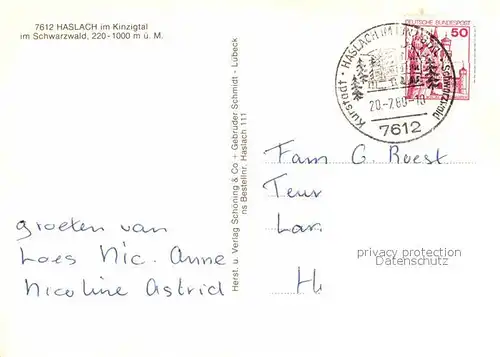 7612 HASLACH im Kinzigtal
im Schwarzwald, 220-1000 m ü. M.
DEUTSCHE BUNDESPOST
50
Kurstadt · HASLACH IM KINZIGTAL · Schwarzwald
20.-7.80-10
7612
Herst. u. Verlag Schöning & Co + Gebrüder Schmidt - Lübeck
ns Bestellnr. Haslach 111
Fam G. Roest
Teun
Lar.
H
groeten van
Loes Nic. Anne
Nicoline Astrid
privacy protection
Datenschutz